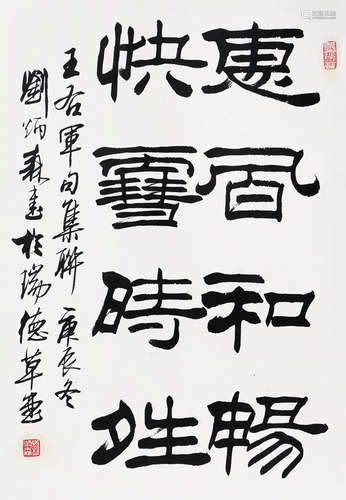 惠風和暢
快雪時姓
王右軍句集聯 庚辰冬
劉炳森書於瑞德草堂